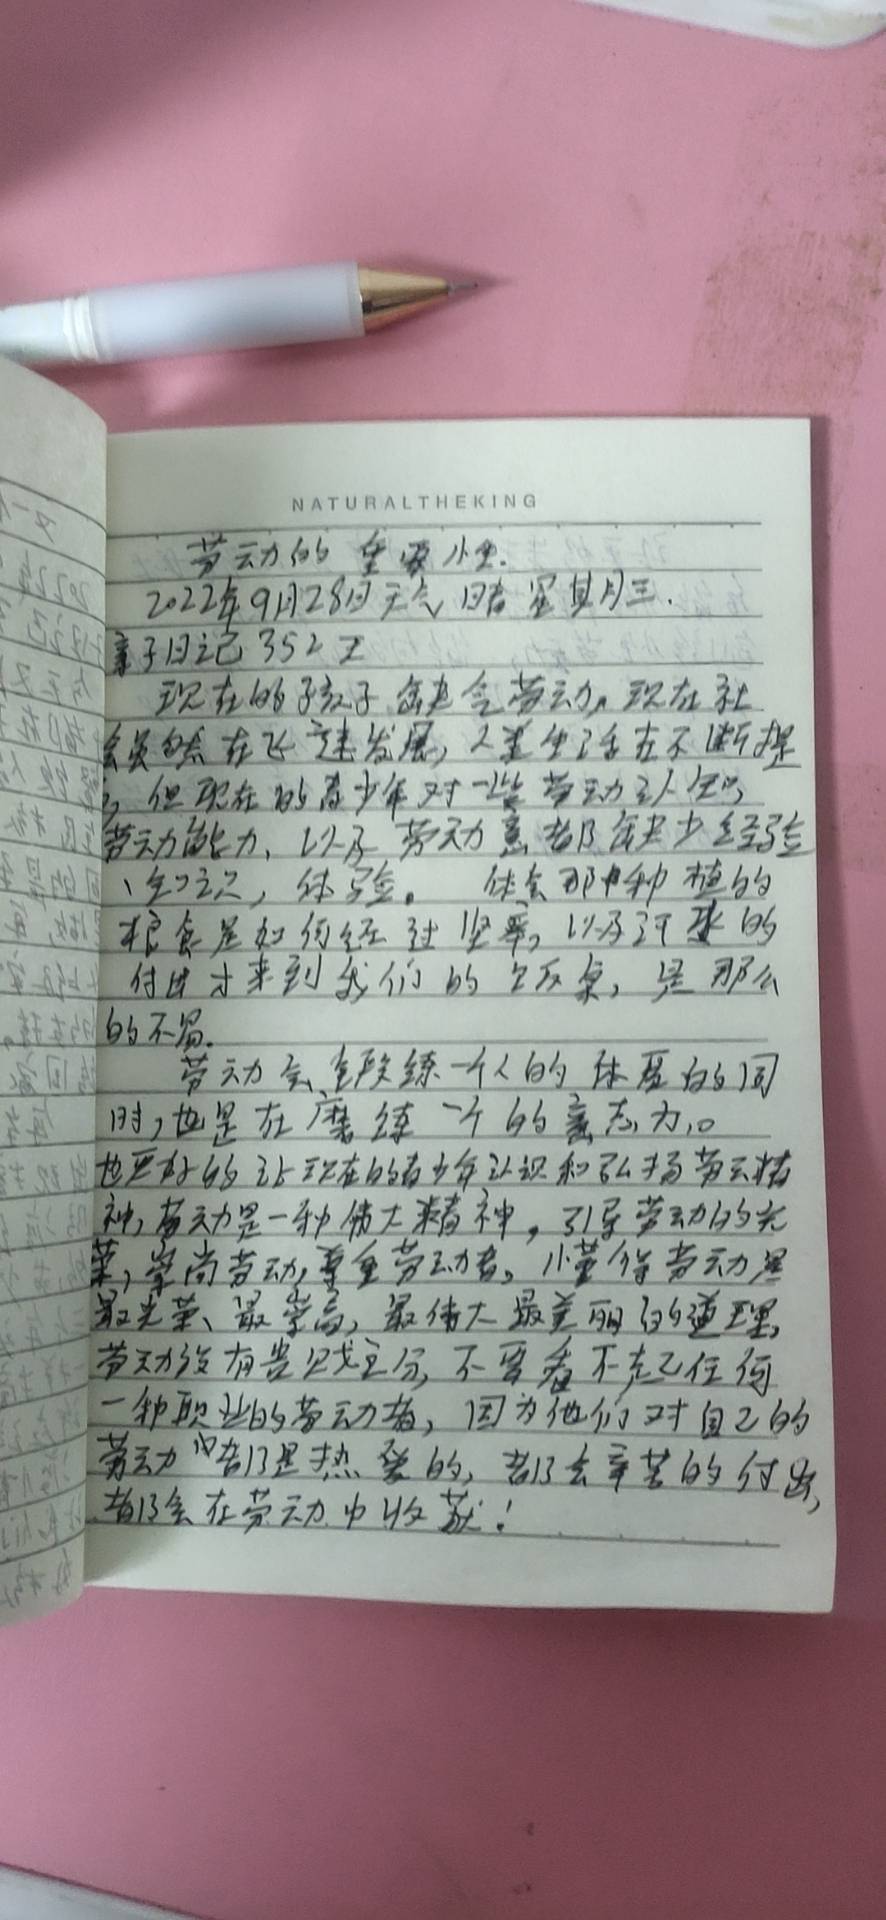 NATURALTHEKING
劳动的重要性.
2022年9月28日天气晴星期三.
亲子日记352天
现在的孩子缺乏劳动,现在社
会虽然在飞速发展,人类生活在不断提
,但现在的青少年对一些劳动认知,
劳动能力、以及劳动意都缺少经验
、知识,体验。体会那种种植的
粮食是如何经过坚辛,以及汗水的
付出才来到我们的饭桌,是那么
的不易.
劳动会锻练一个人的体质的同
时,也是在磨练一个的意志力,。
也更好的让现在的青少年认识和弘扬劳动精
神,劳动是一种伟大精神,引导劳动的光
荣,崇尚劳动,尊重劳动者,懂得劳动是
最光荣、最崇高,最伟大最美丽的道理,
劳动没有贵贱之分,不要看不起任何
一种职业的劳动者,因为他们对自己的
劳动都是热爱的,都会辛苦的付出,
都会在劳动中收获!